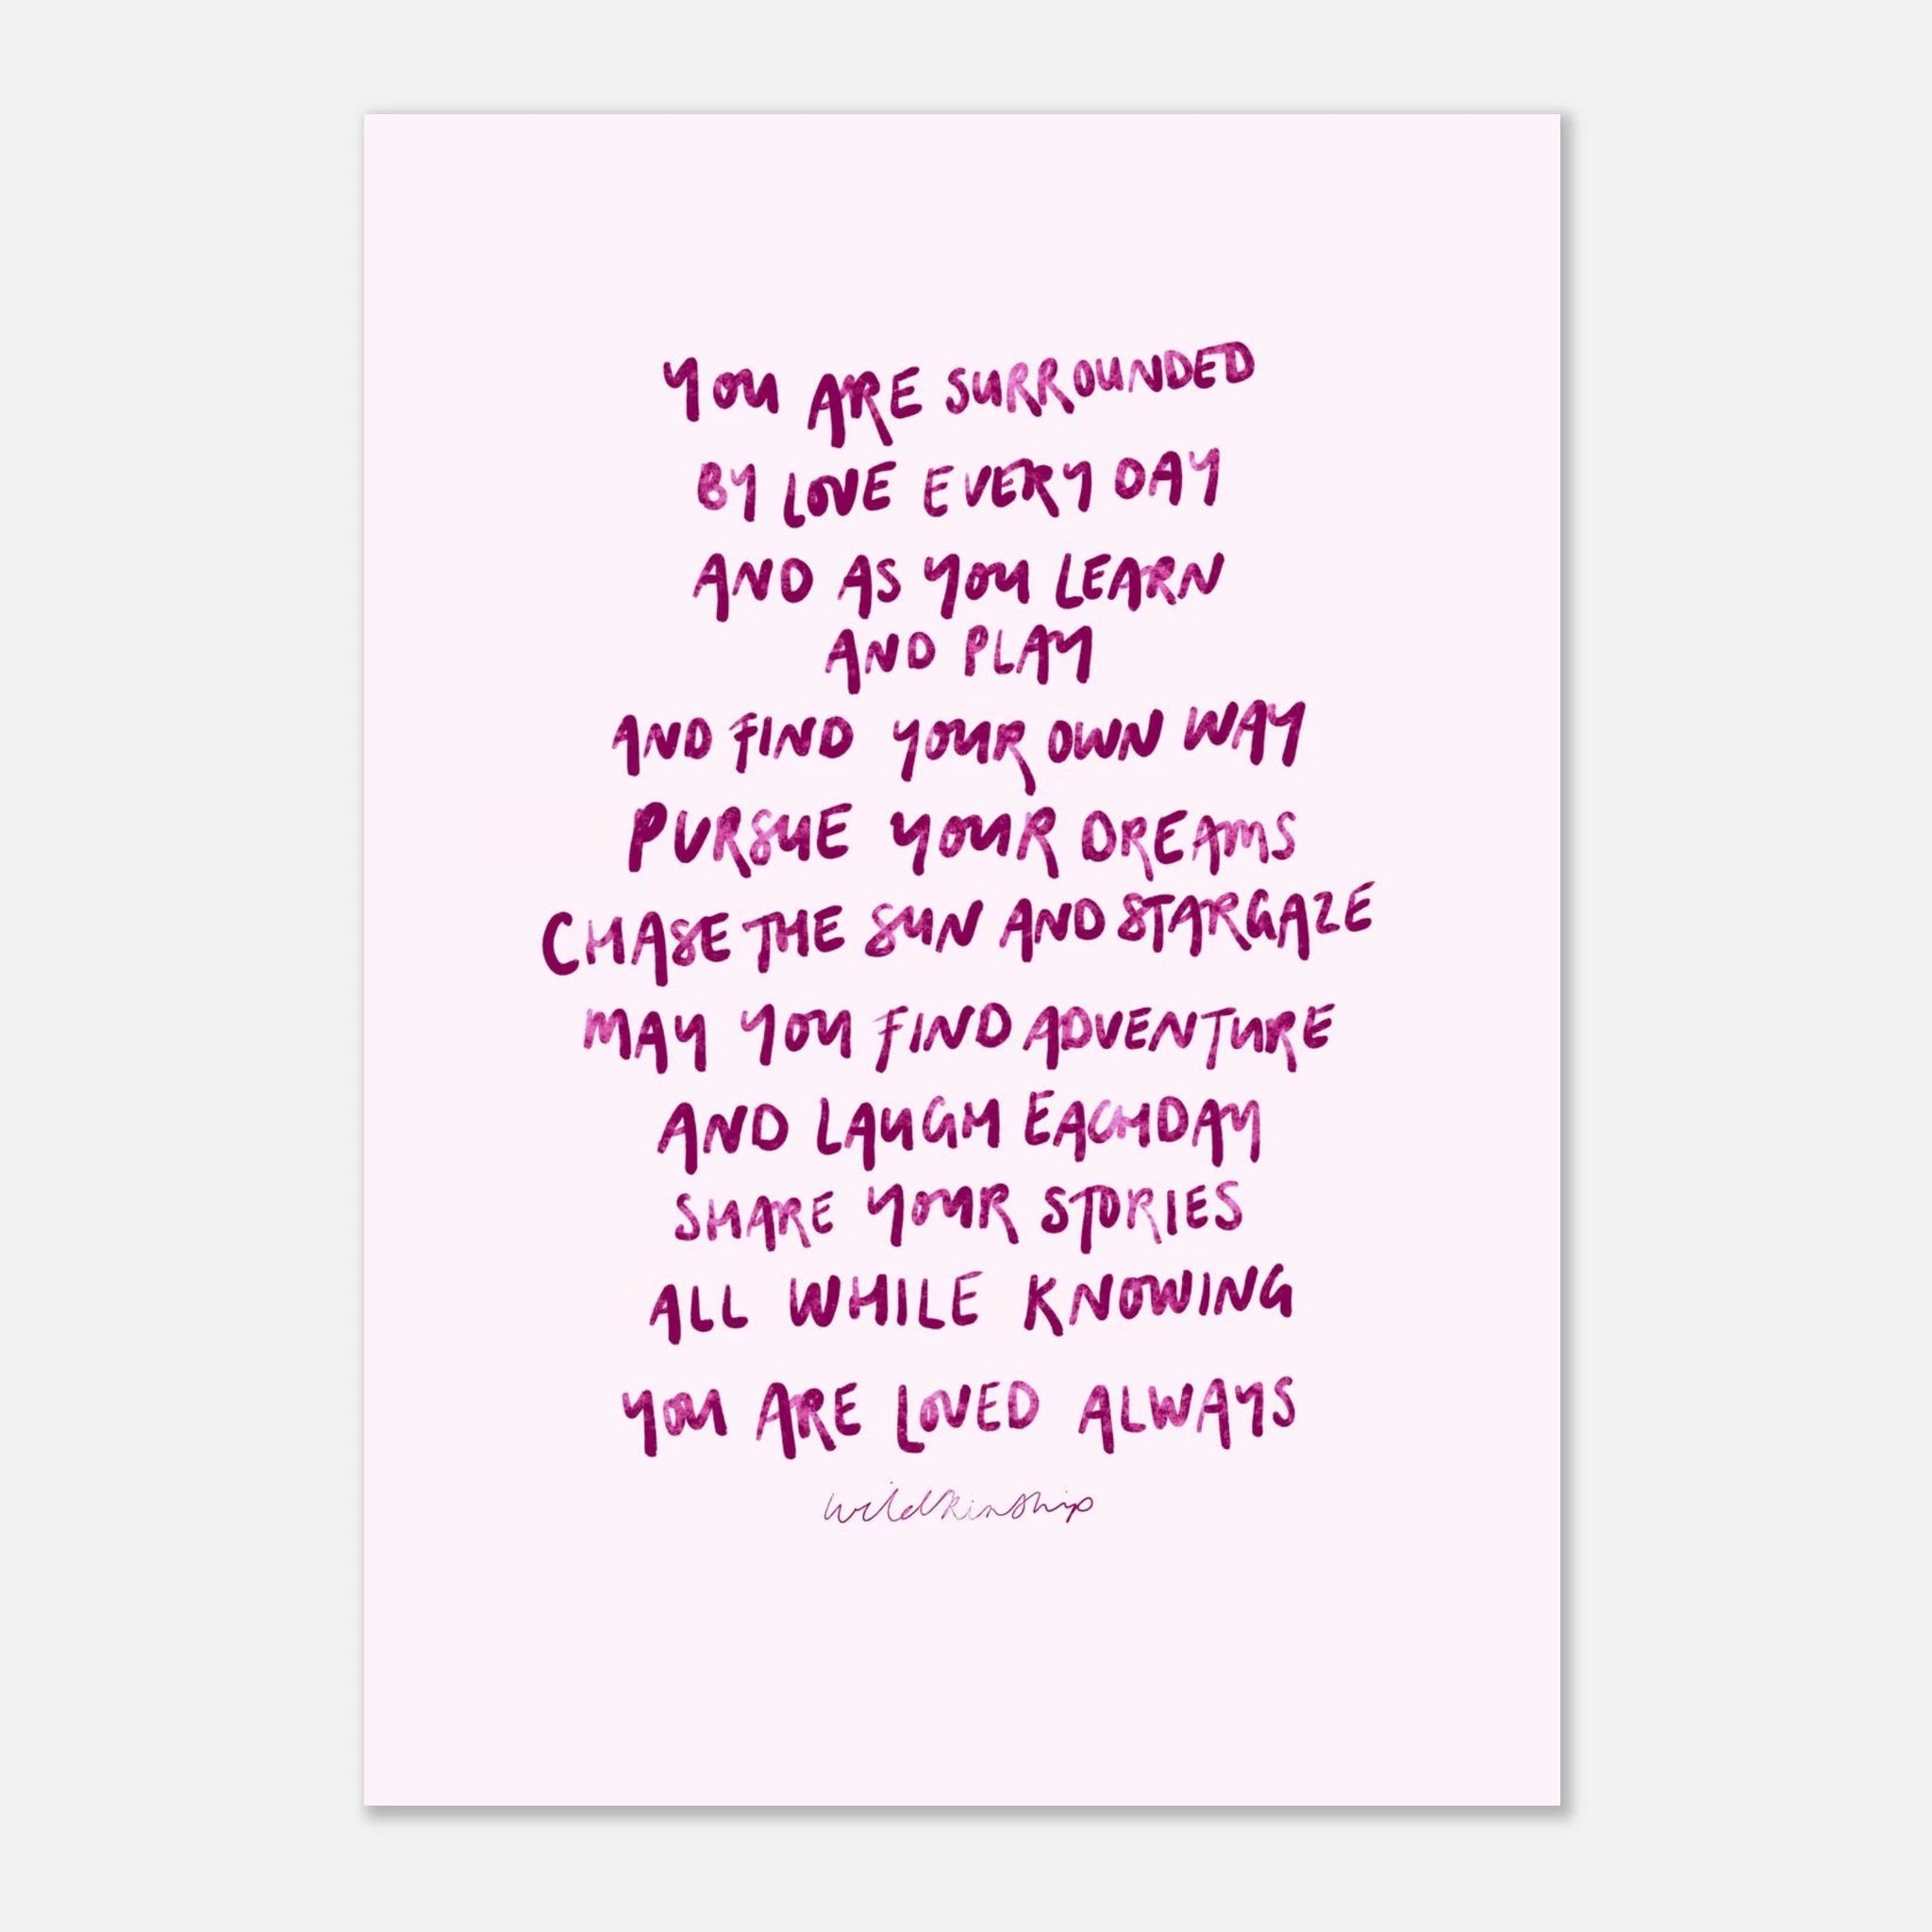 YOU ARE SURROUNDED
BY LOVE EVERY DAY
AND AS YOU LEARN
AND PLAY
AND FIND YOUR OWN WAY
PURSUE YOUR DREAMS
CHASE THE SUN AND STARGAZE
MAY YOU FIND ADVENTURE
AND LAUGH EACH DAY
SHARE YOUR STORIES
ALL WHILE KNOWING
YOU ARE LOVED ALWAYS
wildkinship